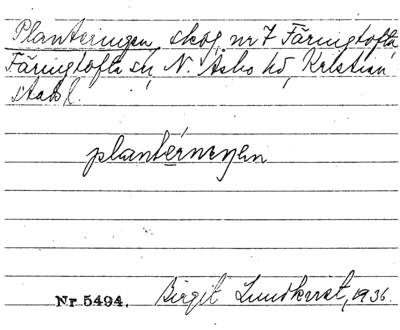 Planteringen, skog, nr 7 Färingtofta
Färingtofta sn, N. Åsbo hd, Kristian
stads l.
plantérneŋen
Nr 5494. Birgit Lundkvist, 1936.